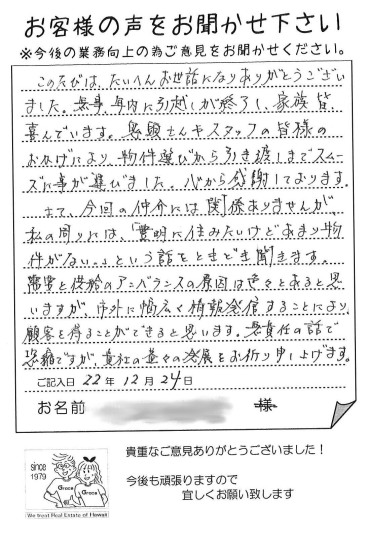 お客様の声をお聞かせ下さい
※今後の業務向上の為ご意見をお聞かせください。
このたびは、たいへんお世話になりありがとうござい
ました。無事、年内に引越しが終了し、家族皆
喜んでいます。恩願さんやスタッフの皆様の
おかげにより物件選びから引き渡しまでスムー
ズに事が運びました。心から感謝しております。
さて、今回の仲介には関係ありませんが、
私の周りには、「豊明に住みたいけどあまり物
件がない。」という話をときどき聞きます。
需要と供給のアンバランスの原因は色々とあると思
いますが、市外に幅広く情報発信することにより、
顧客を得ることができると思います。無責任の話で
恐縮ですが、貴社の益々の発展をお祈り申し上げます。
ご記入日 22 年 12 月 24 日
お名前 様
since
1979
Grace Grace
We treat Real Estate of Hawaii
貴重なご意見ありがとうございました!
今後も頑張りますので
宜しくお願い致します